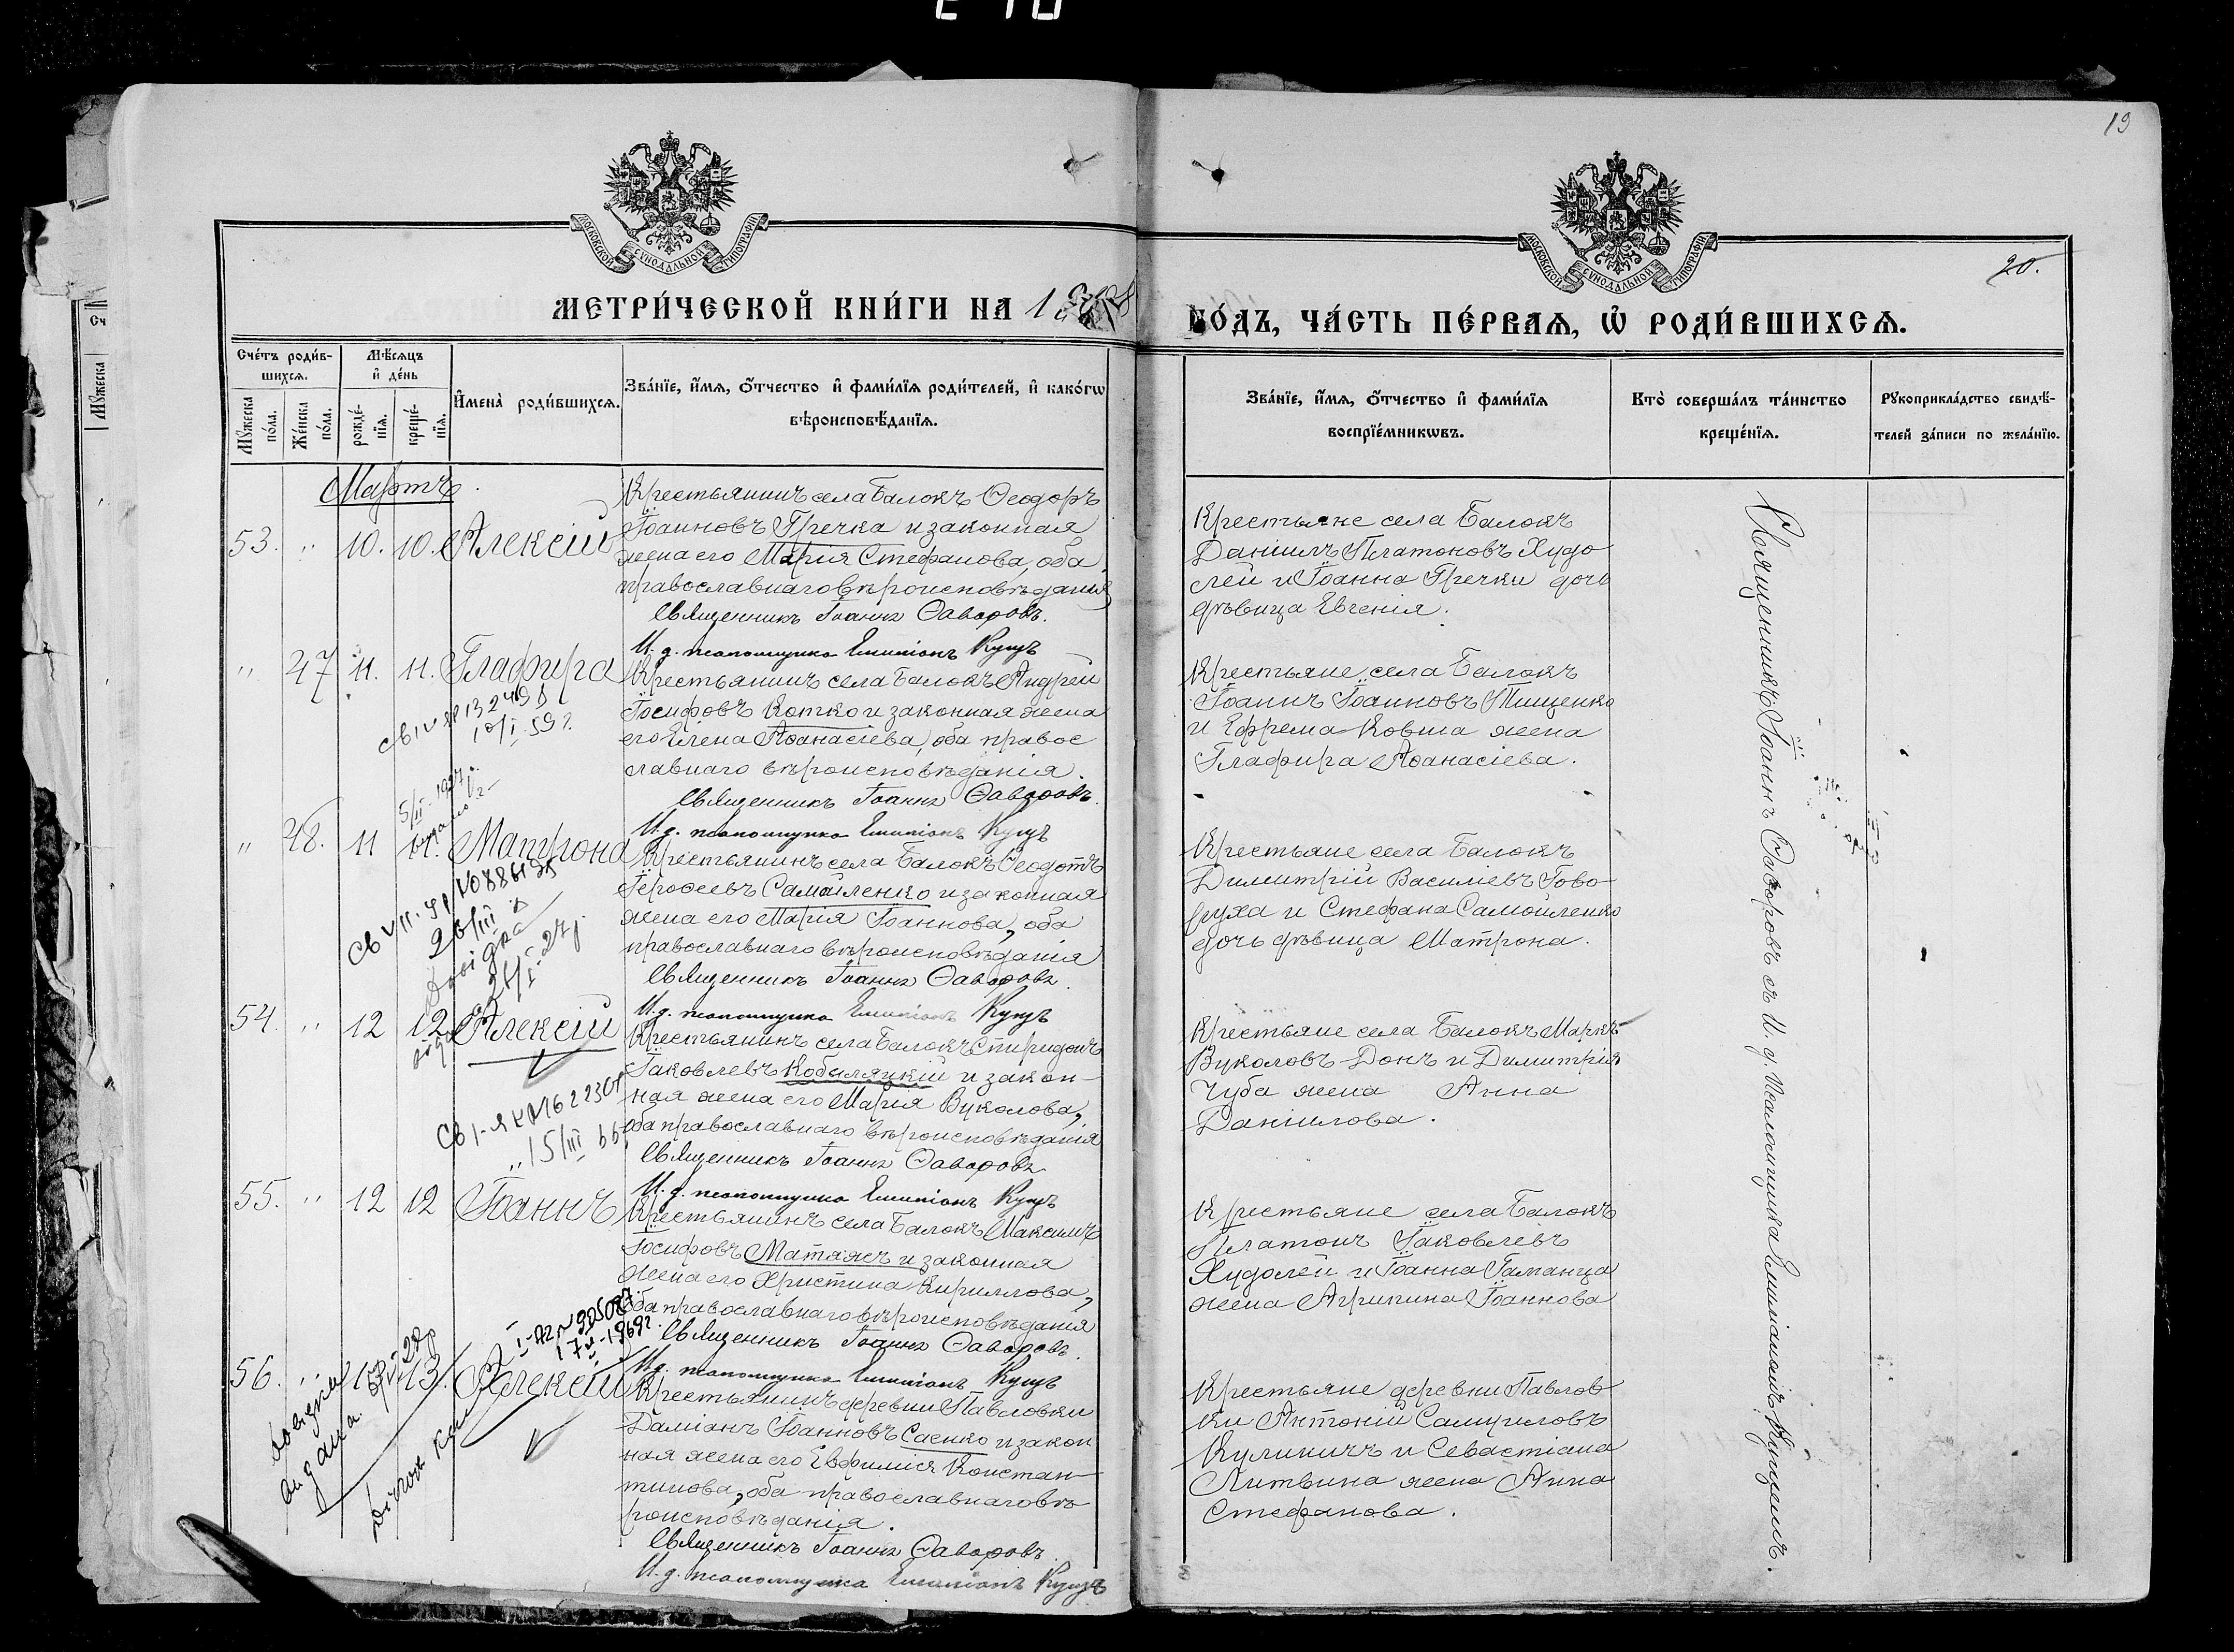 19
20.
МОСКОВСКОЙ СѴНОДАЛЬНОЙ ТИПОГРАФІИ
МЕТРИ́ЧЕСКОЙ КНИ́ГИ НА 1
МОСКОВСКОЙ СѴНОДАЛЬНОЙ ТИПОГРАФІИ
ГО́ДЪ, ЧА́СТЬ ПЕ́РВАѦ, Ѡ҆ РОДИ́ВШИХСѦ.
Сче́тъ роди́в-
шихсѧ.
Мꙋ́жеска по́ла.
Же́нска по́ла.
Мѣ́сѧцъ
и҆ де́нь
рожде́-
нїѧ.
креще́-
нїѧ.
И҆мена̀ роди́вшихсѧ.
Зва́нїе, и҆́мѧ, ѻ҆́тчество и҆ фами́лїѧ роди́телей, и҆ како́гѡ
вѣроисповѣ́данїѧ.
Зва́нїе, и҆́мѧ, ѻ҆́тчество и҆ фами́лїѧ
воспрїе́мникѡвъ.
Кто̀ соверша́лъ та́инство
креще́нїѧ.
Рꙋкоприкла́дство свидѣ́-
телей за́писи по жела́нїю.
Мартъ
53. " 10. 10. Алексій
Крестьянинъ села Балокъ Ѳеодоръ
Іоанновъ Гречка и законная
жена его Марія Стефанова, оба
православнаго вѣроисповѣданія
Священникъ Іоаннъ Ѳаворовъ.
И. д. псаломщика Емиліанъ Куцъ
Крестьяне села Балокъ
Даніилъ Платоновъ Худо
лей и Іоанна Гречки дочь
дѣвица Евгенія.
" 47 11. 11. Глафира
10/I 59 г.
Крестьянинъ села Балокъ Андрей
Іосифовъ Котко и законная жена
его Елена Аѳанасіева, оба правос
лавнаго вѣроисповѣданія.
Священникъ Іоаннъ Ѳаворовъ.
И. д. псаломщика Емиліанъ Куцъ
Крестьяне села Балокъ
Іоаннъ Іоанновъ Тищенко
и Ефрема Ковша жена
Глафира Аѳанасіева.
" 48. 11 11. Матрона
Крестьянинъ села Балокъ Ѳеодотъ
Іероѳеевъ Самойленко и законная
жена его Марія Іоаннова, оба
православнаго вѣроисповѣданія
Священникъ Іоаннъ Ѳаворовъ.
И. д. псаломщика Емиліанъ Куцъ
Крестьяне села Балокъ
Димитрій Василіевъ Гово
руха и Стефана Самойленко
дочь дѣвица Матрона.
54. " 12 12 Алексій
15/III 66
Крестьянинъ села Балокъ Спиридонъ
Іаковлевъ Кобиляцкій и закон-
ная жена его Марія Вуколова,
оба православнаго вѣроисповѣданія
Священникъ Іоаннъ Ѳаворовъ
И. д. псаломщика Емиліанъ Куцъ
Крестьяне села Балокъ Маркъ
Вуколовъ Донъ и Димитрія
Чуба жена Анна
Даніилова.
55. " 12 12 Іоаннъ
Крестьянинъ села Балокъ Максимъ
Іосифовъ Матяжъ и законная
жена его Христина Кириллова,
оба православнаго вѣроисповѣданія
Священникъ Іоаннъ Ѳаворовъ.
И. д. псаломщика Емиліанъ Куцъ
Крестьяне села Балокъ
Платонъ Іаковлевъ
Худолей и Іоанна Гаманца
жена Агрипина Іоаннова
56. " 13 13. Алексій
Крестьянинъ деревни Павловки
Даміанъ Іоанновъ Саенко и закон
ная жена его Евфимія Констан-
тинова, оба православнаго вѣ
роисповѣданія.
Священникъ Іоаннъ Ѳаворовъ
И. д. псаломщика Емиліанъ Куцъ
Крестьяне деревни Павлов
ки Антоній Самуиловъ
Куличичъ и Севастіана
Литвина жена Анна
Стефанова.
Священникъ Іоаннъ Ѳаворовъ съ И. д. Псаломщика Емиліаномъ Куцемъ.